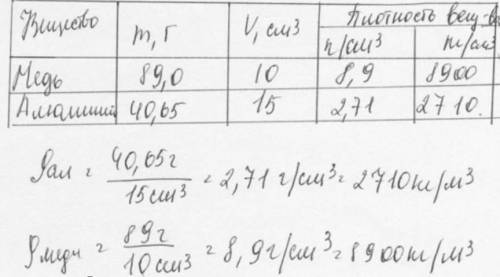 Вещество m, г V, см³ Плотность вещ-ва
г/см³ кг/м³
Медь 89,0 10 8,9 8900
Алюминий 40,65 15 2,71 2710.
ρал = 40,65г / 15см³ = 2,71 г/см³ = 2710кг/м³
ρмеди = 89г / 10см³ = 8,9г/см³ = 8900кг/м³